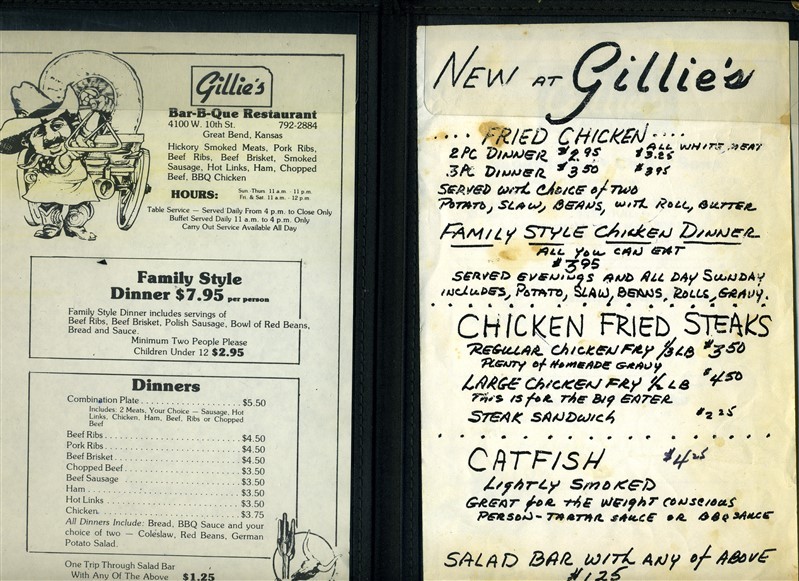 Gillie's
Bar-B-Que Restaurant
4100 W. 10th St. 792-2884
Great Bend, Kansas
Hickory Smoked Meats, Pork Ribs,
Beef Ribs, Beef Brisket, Smoked
Sausage, Hot Links, Ham, Chopped
Beef, BBQ Chicken
HOURS: Sun.-Thurs 11 a.m. - 11 p.m.
Fri. & Sat. 11 a.m. - 12 p.m.
Table Service — Served Daily From 4 p.m. to Close Only
Buffet Served Daily 11 a.m. to 4 p.m. Only
Carry Out Service Available All Day
Family Style
Dinner $7.95 per person
Family Style Dinner includes servings of
Beef Ribs, Beef Brisket, Polish Sausage, Bowl of Red Beans,
Bread and Sauce.
Minimum Two People Please
Children Under 12 $2.95
Dinners
Combination Plate $5.50
Includes: 2 Meats, Your Choice — Sausage, Hot
Links, Chicken, Ham, Beef, Ribs or Chopped
Beef
Beef Ribs $4.50
Pork Ribs $4.50
Beef Brisket $4.50
Chopped Beef $3.50
Beef Sausage $3.50
Ham $3.50
Hot Links $3.50
Chicken $3.75
All Dinners Include: Bread, BBQ Sauce and your
choice of two — Coleslaw, Red Beans, German
Potato Salad.
One Trip Through Salad Bar
With Any Of The Above $1.25
NEW AT Gillie's
FRIED CHICKEN ALL WHITE MEAT
2PC DINNER $2.95 $3.25
3PC DINNER $3.50 $3.95
SERVED WITH CHOICE OF TWO
POTATO, SLAW, BEANS, WITH ROLL, BUTTER
FAMILY STYLE CHICKEN DINNER
ALL YOU CAN EAT
$3.95
SERVED EVENINGS AND ALL DAY SUNDAY
INCLUDES, POTATO, SLAW, BEANS, ROLLS, GRAVY.
CHICKEN FRIED STEAKS
REGULAR CHICKEN FRY 1/3 LB $3.50
PLENTY OF HOMEADE GRAVY
LARGE CHICKEN FRY 1/2 LB $4.50
THIS IS FOR THE BIG EATER
STEAK SANDWICH $2.25
CATFISH $4.25
LIGHTLY SMOKED
GREAT FOR THE WEIGHT CONSCIOUS
PERSON-TARTAR SAUCE OR BBQ SAUCE
SALAD BAR WITH ANY OF ABOVE
$1.25